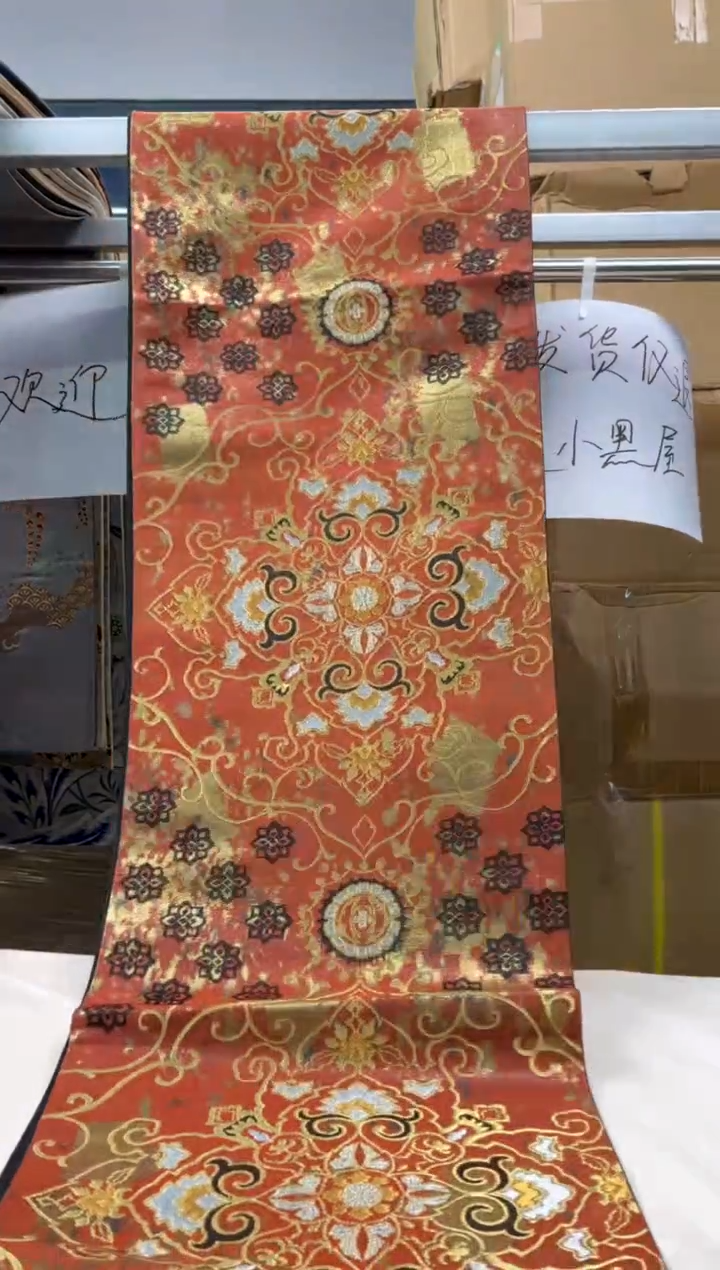 欢迎
发货仅退
小黑屋